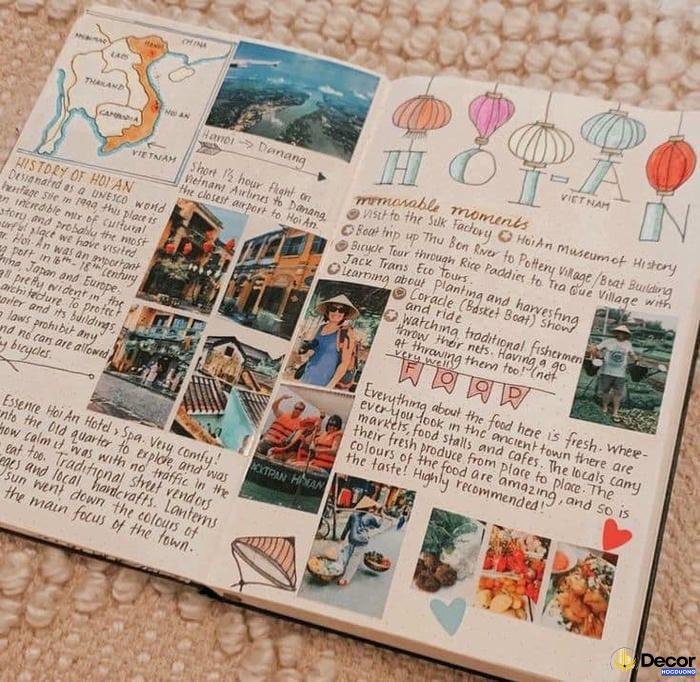 MYANMAR
LAOS
HANOI
CHINA
THAILAND
CAMBODIA
HOI AN
VIETNAM
Hanoi → Danang
Short 1½ hour flight on
Vietnam Airlines to Danang,
the closest airport to Hoi An.
HISTORY OF HOI AN
Designated as a UNESCO world
heritage site in 1999, this place is
an incredible mix of cultural
story and probably the most
place we have visited
Hoi An was an important
port in 16th-18th Century
China Japan and Europe.
all pretty evident in the
architecture. To protect
quarter and its buildings
laws prohibit any
and no cars are allowed
bicycles.
Essence Hoi An Hotel & Spa. Very Comfy!
into the Old quarter to explore, and was
how calm it was with no traffic in the
eat too. Traditional street vendors
and local handicrafts. Lanterns
sun went down the colours of
the main focus of the town.
HOI-AN
VIETNAM
memorable moments
Visit to the Silk Factory
Hoi An Museum of History
Boat trip up Thu Bon River to Pottery Village/Boat Building
Bicycle Tour through Rice Paddies to Tra Que Village with
Jack Trans Eco Tours.
Learning about planting and harvesting
Coracle (Basket Boat) Show
and ride
Watching traditional fishermen
throw their nets. Having a go
at throwing them too! (not
very well)
FOOD
Everything about the food here is fresh. Where-
ever you look in the ancient town there are
markets, food stalls and cafes. The locals carry
their fresh produce from place to place. The
colours of the food are amazing, and so is
the taste! Highly recommended!
JACKTRAN HOIAN
Decor
HOCDUONG